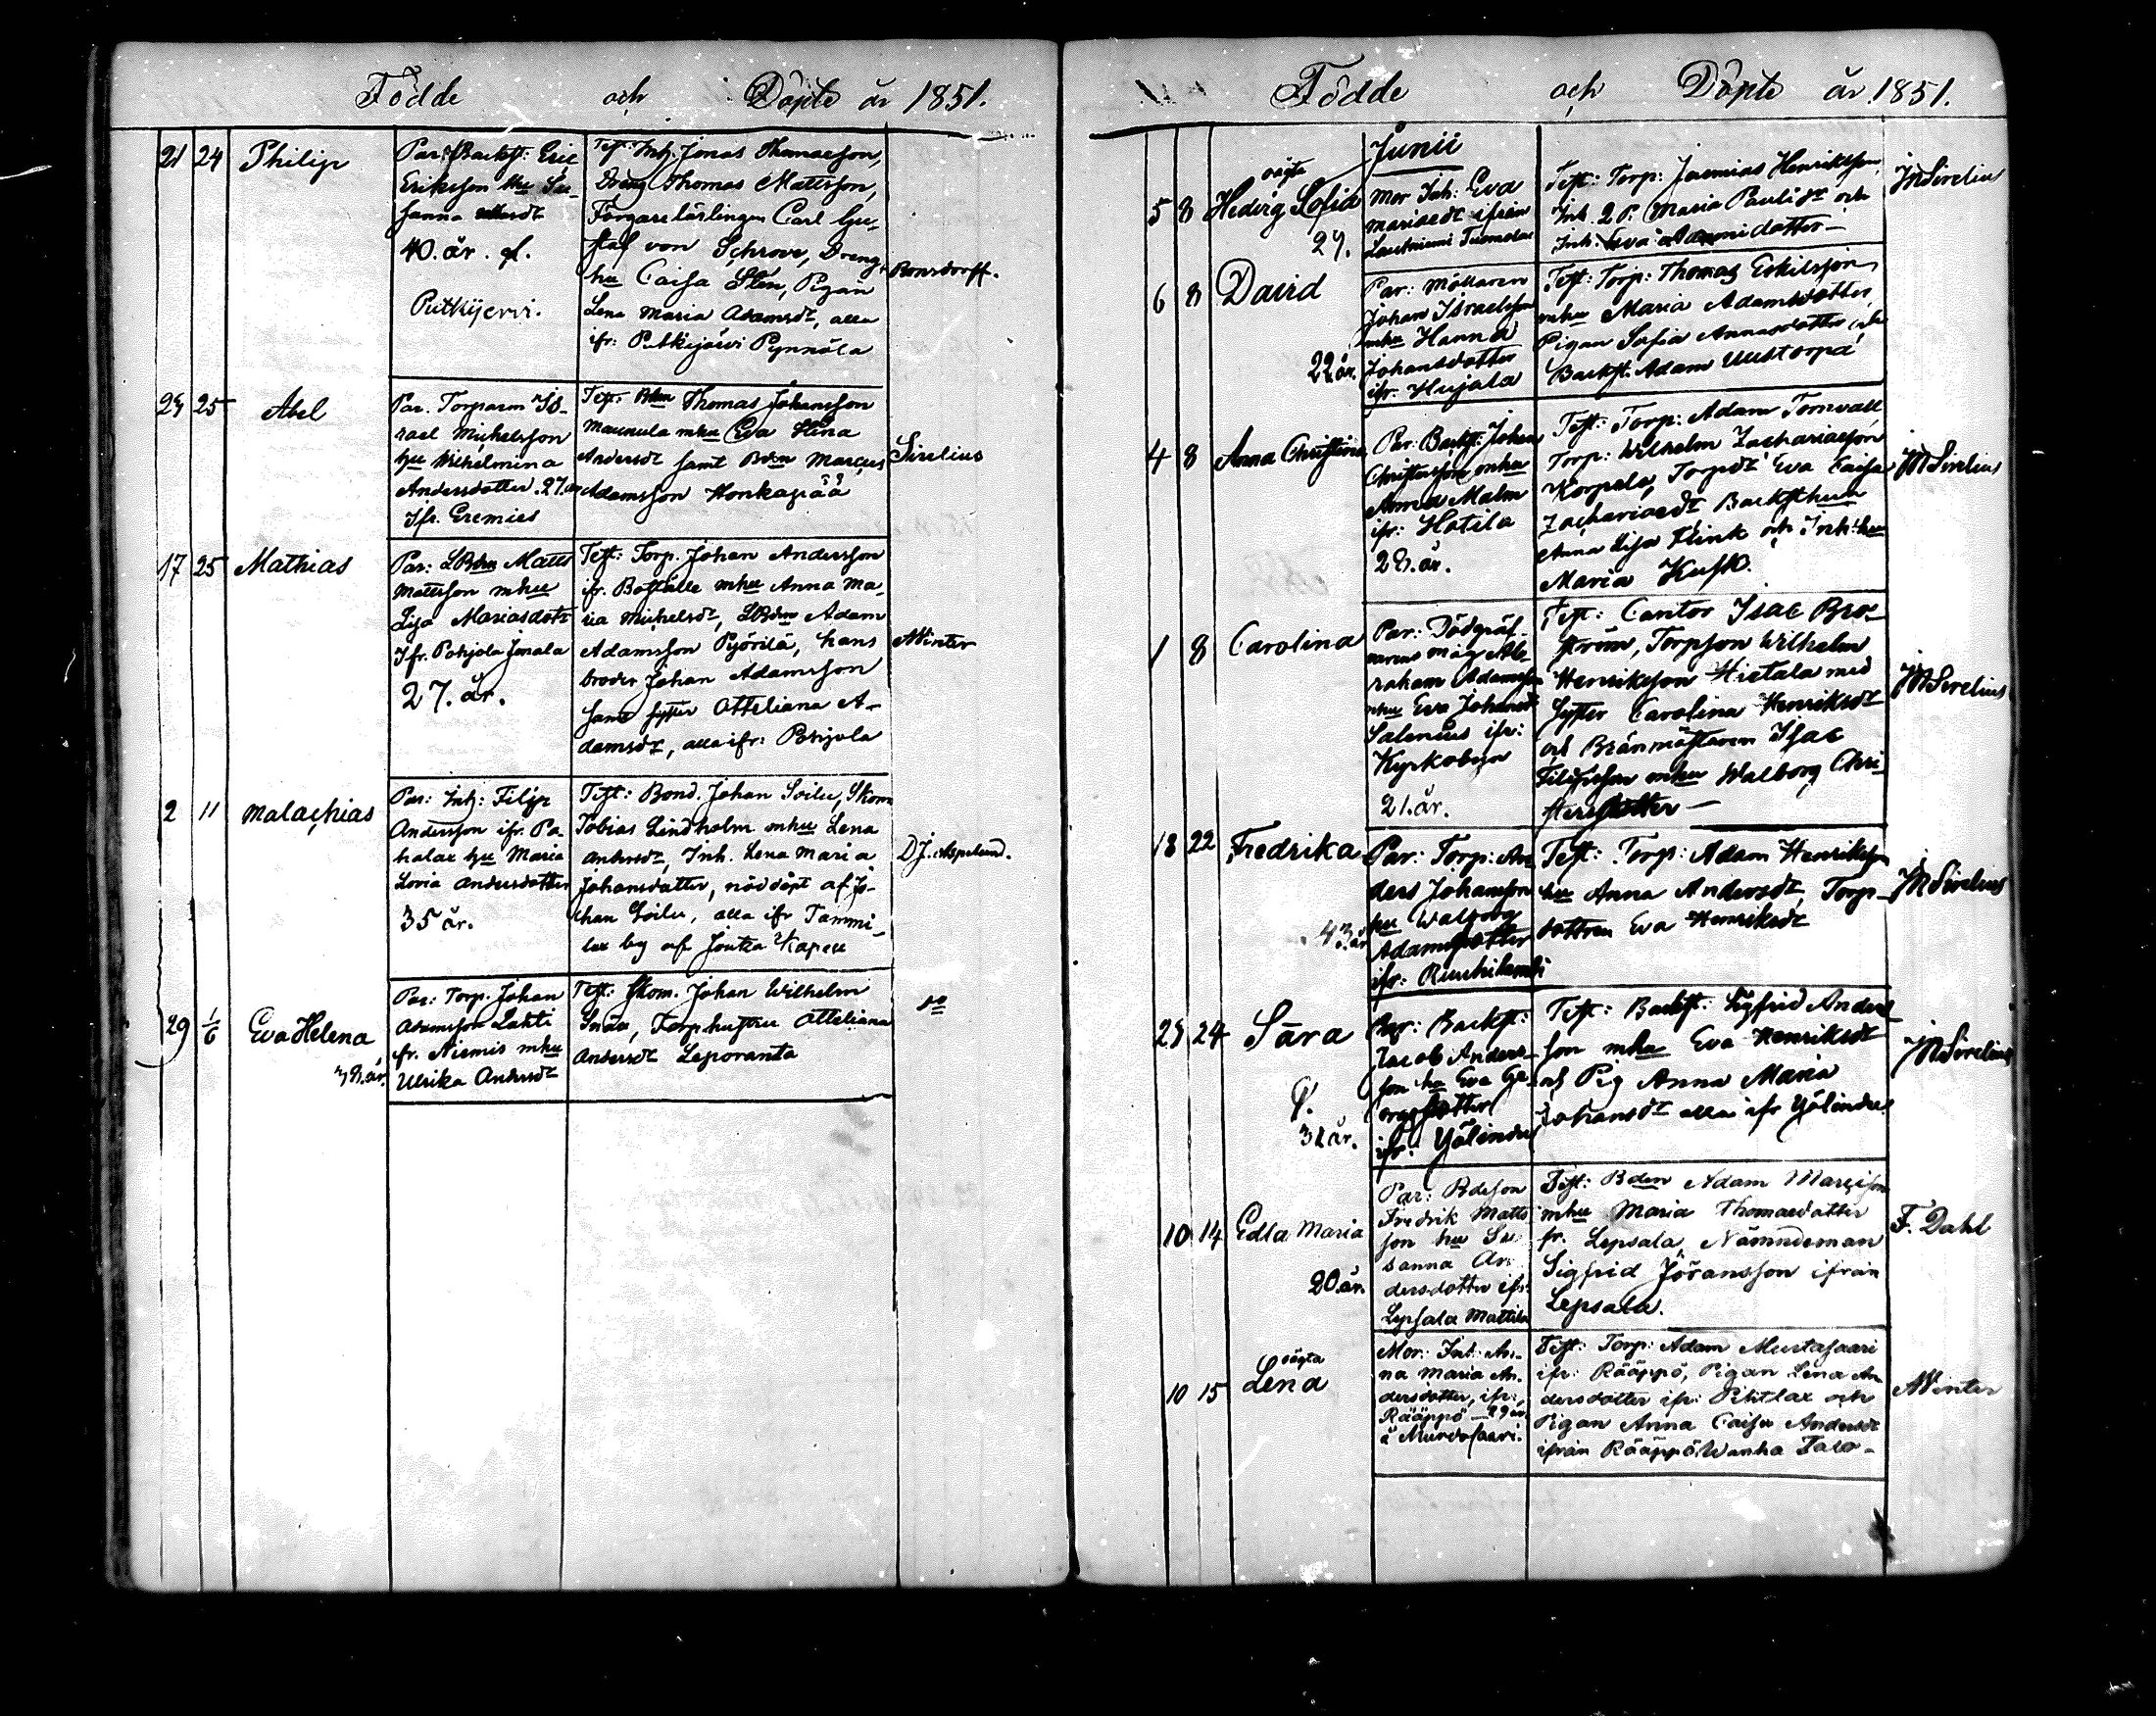 Födde och Döpte år 1851.
21 24 Philip
Par: Backst: Eric
Eriksson hu Su-
sanna
40. år. gl.
Putkijervi.
Test: Inh. Jonas Thomasson,
Dräng Thomas Mattsson,
Färgarelärlingen Carl Gu-
staf von Schrove, Drengs
hu Caisa Sten, Pigan
Lena Maria Adamsdr, alla
ifr: Putkijärvi Pynnölä
Bonsdorff.
24 25 Abel
Par. Torparen Is-
rael Michelsson
hu Wilhelmina
Andersdotter. 27. år
Ifr. Eremies
Test: Bdn Thomas Johansson
Maunula mhu Eva Stina
Andersdr samt Bdn Marcus
Adamsson Honkapää
Sirelius
17 25 Mathias
Par: LBdn Matts
Mattsson mhu
Lisa Mariasdotr
Ifr. Pohjola Jenala
27. år.
Test: Torp. Johan Andersson
ifr. Boställe mhu Anna Ma-
ria Michelsdr, LBdn Adam
Adamsson Pyörilä, hans
broder Johan Adamsson
samt syster Otteliana A-
damsdr, alla ifr: Porjola
AWinter
2 11 Malachias
Par: Inh: Filip
Andersson ifr. Pa-
halax hu Maria
Lovia Andersdotter
35 år.
Test: Bond. Johan Soilu, Skom
Tobias Lindholm mhu Lena
Andersdr, Inh. Lena Maria
Johansdotter, nöddöpt af Jo-
han Soilu, alla ifr Tammi-
lax by af Joutsa Kapell
D.J. Aspelund.
29 1/6 Eva Helena
38. år.
Par: Torp. Johan
Adamsson Lahti
fr. Niemis mhu
Ulrika Andersdr
Test: Skom. Johan Wilhelm
Snäll, Torp hustru Otteliana
Andersdr Leporanta
do
Födde och Döpte år 1851.
Junii
5 8 oägta
Hedvig Sofia
29.
Mor Inh: Eva
Mariaedr ifrån
Lautniemi Tuomola
Test: Torp: Jeremias Henriksson,
Inh. 2 P. Maria Paulidr och
Inh: Eva Adamidotter-
JMSirelius
6 8 David
22 år.
Par: Möllaren
Johan Israelsson
mhu Hanna
Johansdotter
ifr. Hujala
Test: Torp: Thomas Eskilsson
mhu Maria Adamsdotter,
Pigan Sofia Annasdotter och
Backst. Adam Uustorpa
4 8 Anna Christina
Par: Backst: Johan
Christersson mhu
Anna Malm
ifr: Hotila
28. år.
Test: Torp: Adam Tornvall
Torp: Wilhelm Zachariasson
Korpela, Torpdr Eva Caisa
Zachariaedr Backsthu
Anna Lisa Flink och Inh: hu
Maria Kusto.
JMSirelius
1 8 Carolina
Par: Dödgräf-
varens måg Ab-
raham Adamsson
mhu Eva Johansdr
Salenius ifr:
Kyrkobyn
21. år.
Test: Cantor Isac Bro-
ström, Torpson Wilhelm
Henriksson Hietala med
Syster Carolina Henriksdr
och Bränmästaren Isac
Filipsson mhu Walborg Chri-
stersdotter-
JMSirelius
18 22 Fredrika
43. år
Par: Torp: An-
ders Johansson
hu Walborg
Adamsdotter
ifr: Ruuhilambi
Test: Torp: Adam Henriksson
hu Anna Andersdr, Torp-
dottren Eva Henriksdr
JMSirelius
23 24 Sara
31 år.
Par: Backst:
Jacob Anders-
son hu Eva Ge-
orgsdotter
ifr: Yölindu
Test: Backst: Sigfrid Anders-
son mhu Eva Henriksdr
och Pig Anna Maria
Johansdr alla ifr Yölindu
JMSirelius
10 14 Edla Maria
20. år.
Par: Bdeson
Fredrik Matts
son hu Su
sanna An-
dersdotter ifr:
Lepsala Mattila
Test: Bden Adam Marcisson
mhu Maria Thomaedotter
fr. Lepsala, Nämndeman
Sigfrid Jöransson ifrån
Lepsala.
F. Dahl
10 15 oägta
Lena
Mor: Inh: An-
na Maria An-
dersdotter, ifr:
Rääppö 29 år
å Murdosaari.
Test: Torp: Adam Mustasaari
ifr: Rääppö, Pigan Lena An
dersdotter ifr: Pihtlax och
Pigan Anna Caisa Andersdr
ifrån Rääppö Wanha Talo-
AWinter